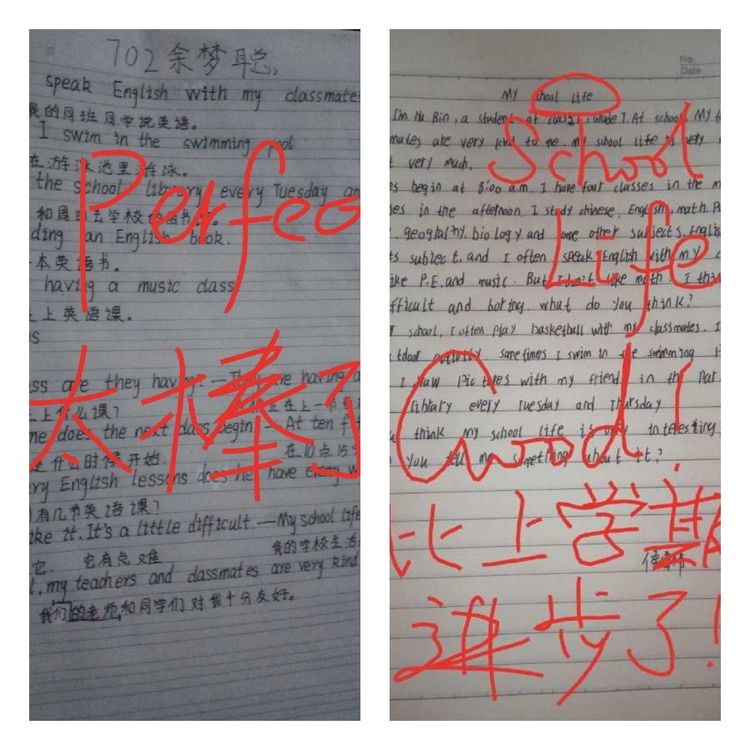 702 余梦聪
speak English with my classmate
我的同班同学说英语。
I swim in the swimming pool
在游泳池里游泳。
the school library every Tuesday an
和周四去学校
ding an English book.
本英语书。
having a music class
上英语课。
ss are they having? — They are having a
上什么课?
me does the next class begin — At ten f
是什么时候开始.
在10点15
ry English lessons does he have every w
有几节英语课?
ike it. It's a little difficult — My school life
它. 它有点难
我的学校生活
my teachers and classmates are very kind
我们的老师,和同学们对我十分友好。
Perfec
太棒了
My chool life
I'm Hu Bin, a student at class1, Grade 7. At school My
mates are very kind to me. my school life is very
t very much.
s begin at 8:00 am. I have four classes in the m
es in the afternoon. I study chinese, English, math. P.
geography. biology and some other subjects. Englis
ts subject. and I often speak English with my c
ike P.E, and music. But I don't like math. I thin
fficult and boring. what do you think?
school, I often play basketball with my classmates. I
tdoor activity sometimes I swim in the swimming P
I draw Pictures with my friend in the Par
library every Tuesday and Thursday
think my school life is very interesting
You tell me something about it?
School
Life
Good!
比上学期
进步了!